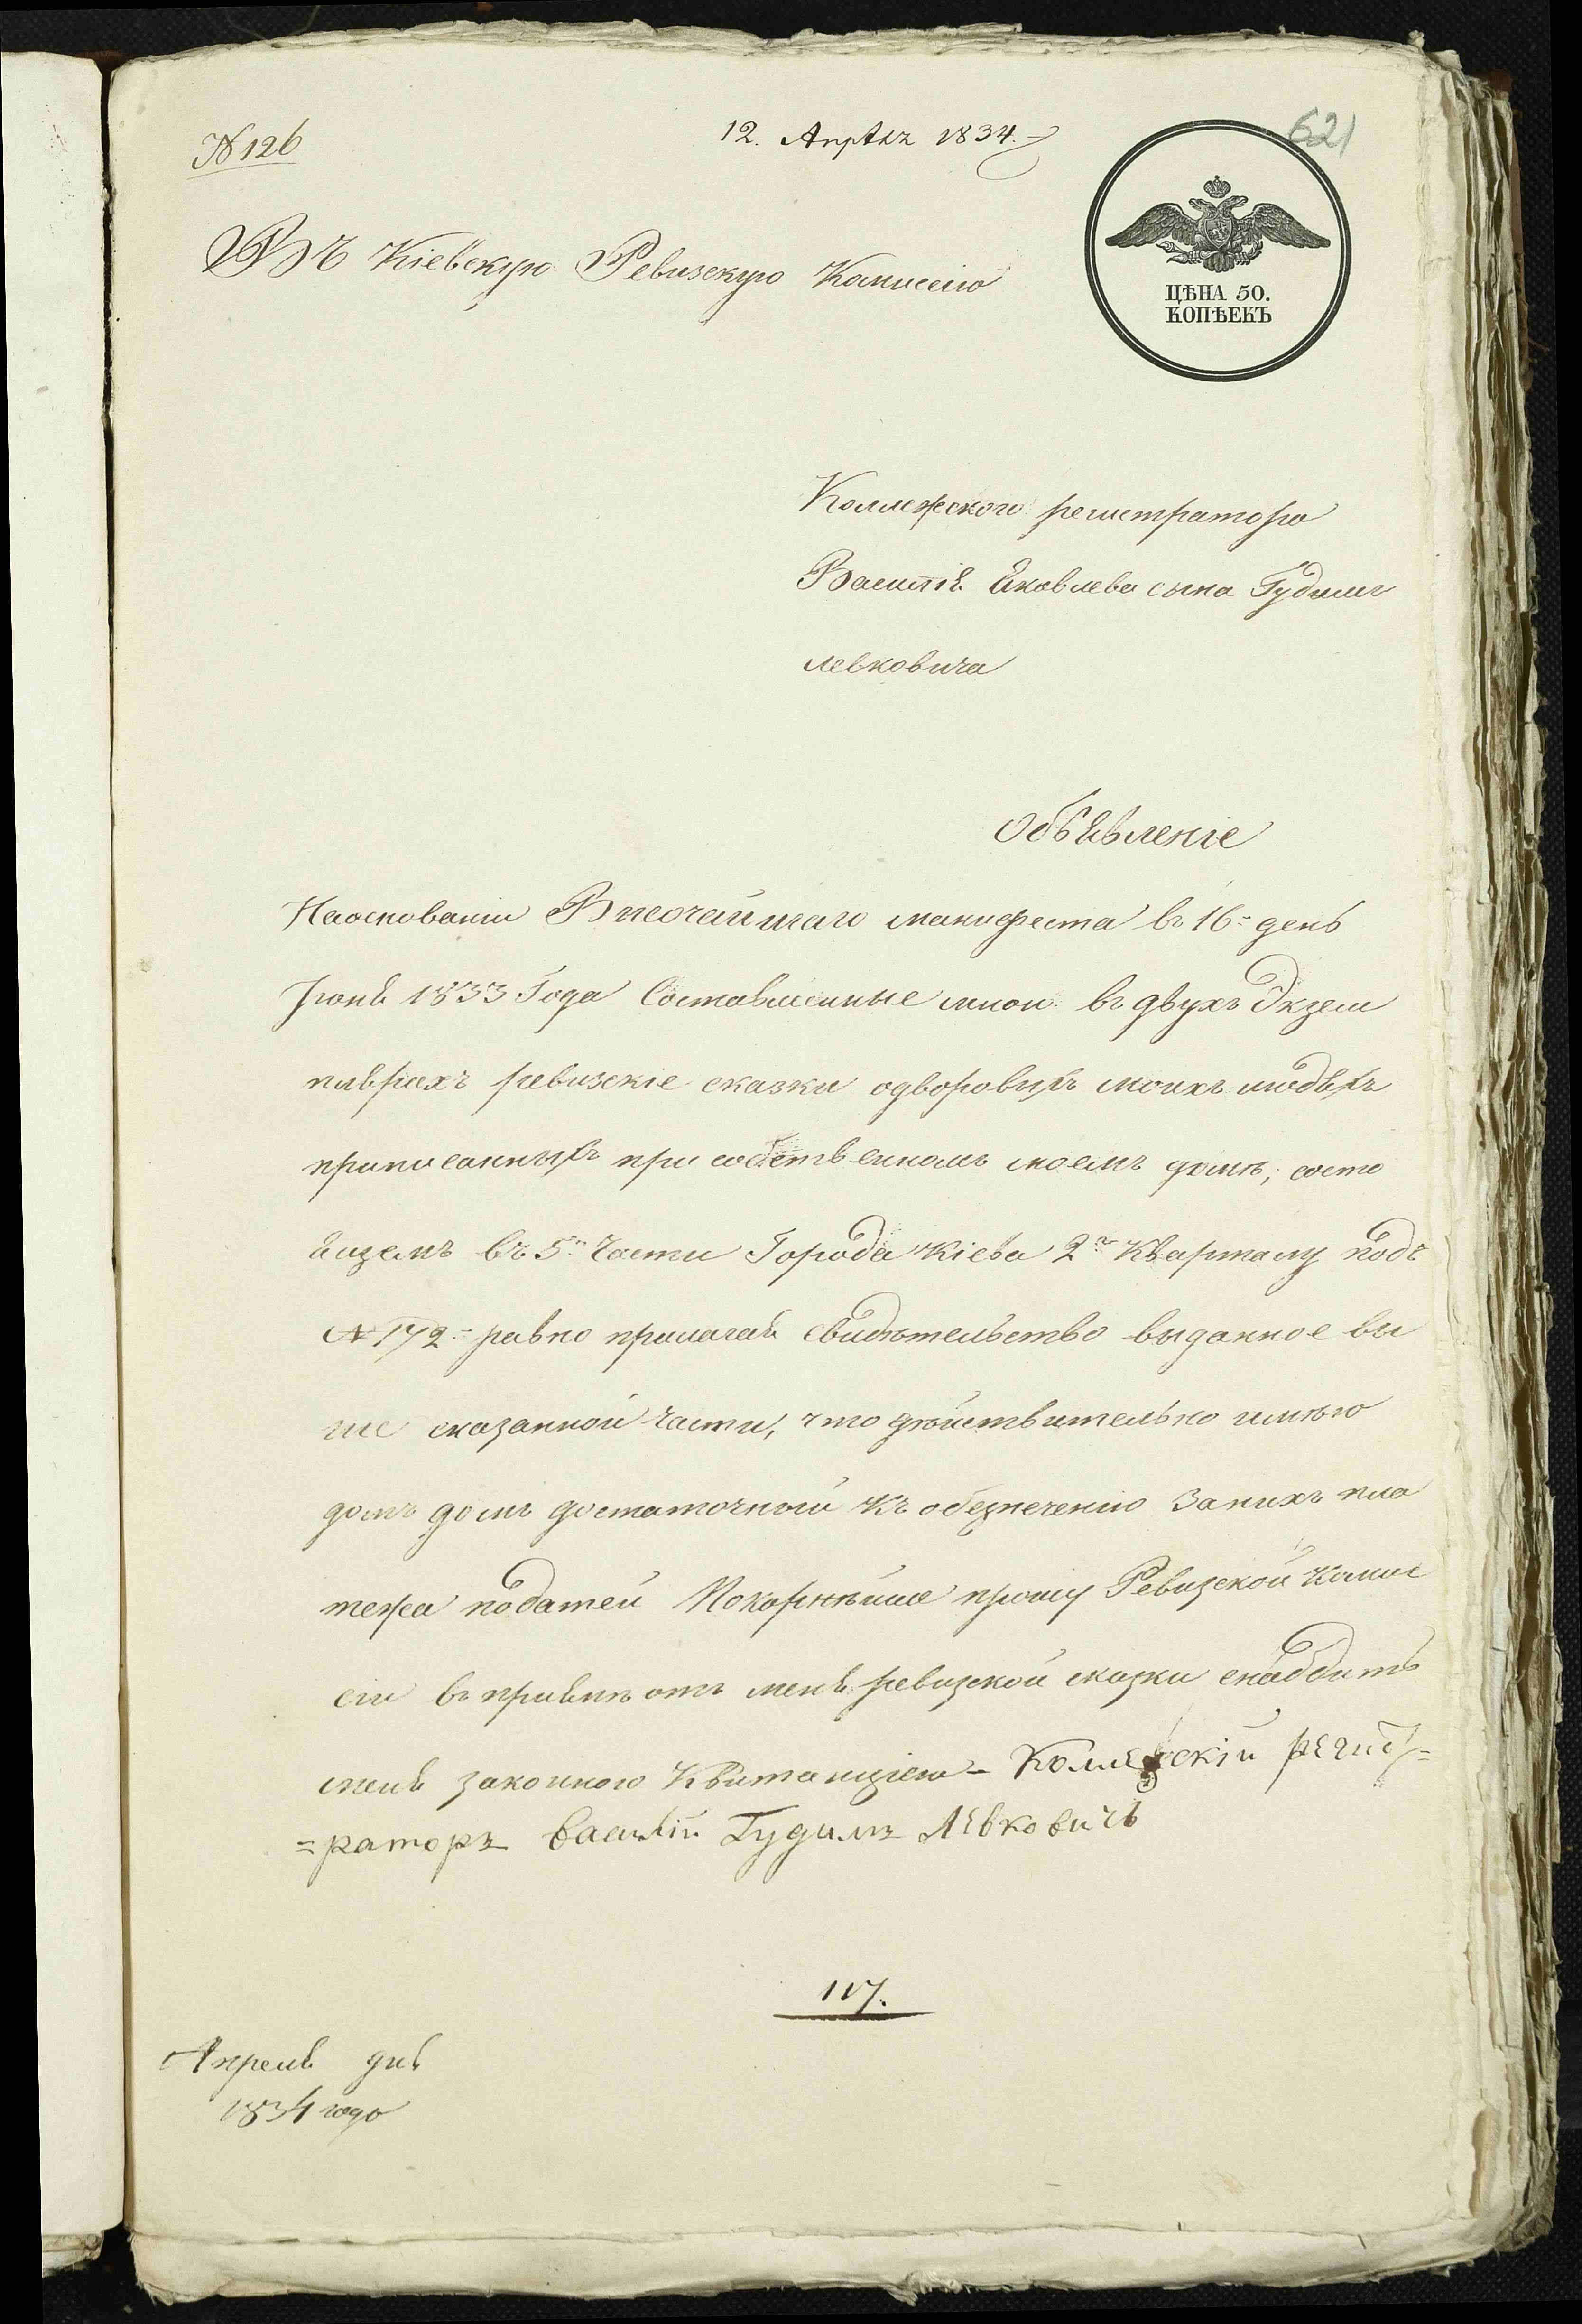 N 126
12. Апрѣлъ 1834.
621
ЦѢНА 50.
КОПѢЕКЪ
Въ Кіевскую Ревизскую Комисеію
Коллежскаго регистратора
Василія Яковлева сына Гудимъ
левковича
Объявленіе
Наоснованіи Высочайшаго манифеста въ 16 день
Іюня 1833 Года Составленные мною въ двухъ Экзем
плярахъ ревизскіе сказки одворовыхъ моихъ людяхъ
приписанныхъ при собственномъ моемъ домѣ, состо
ящемъ въ 5й Части Города Кіева 2го Кварталу подъ
№ 172 равно прилагая свидѣтельство выданное вы
ше сказанной Части, что дѣйствительно имѣю
домъ домъ достаточный къ обезпеченію Занихъ пла
тежа податей Покорнѣйше прошу Ревизской Комис
сіи въ приемѣ отъ меня ревизской сказки снабдить
меня законною Квитанціею - Коллежскій регист=
=раторъ василій Гудимъ Левковичъ
117.
Апреля дня
1834 года